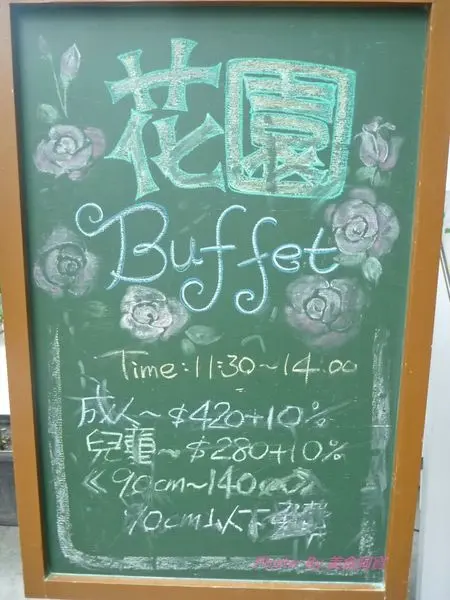 花園
Buffet
Time:11:30~14:00
成人~$420+10%
兒童~$280+10%
<90cm~140cm>
90cm以下免費
Photo By